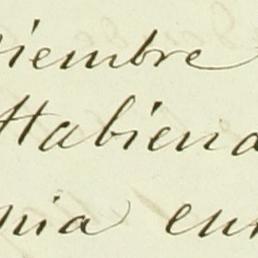 iembre
Habiend
nia en